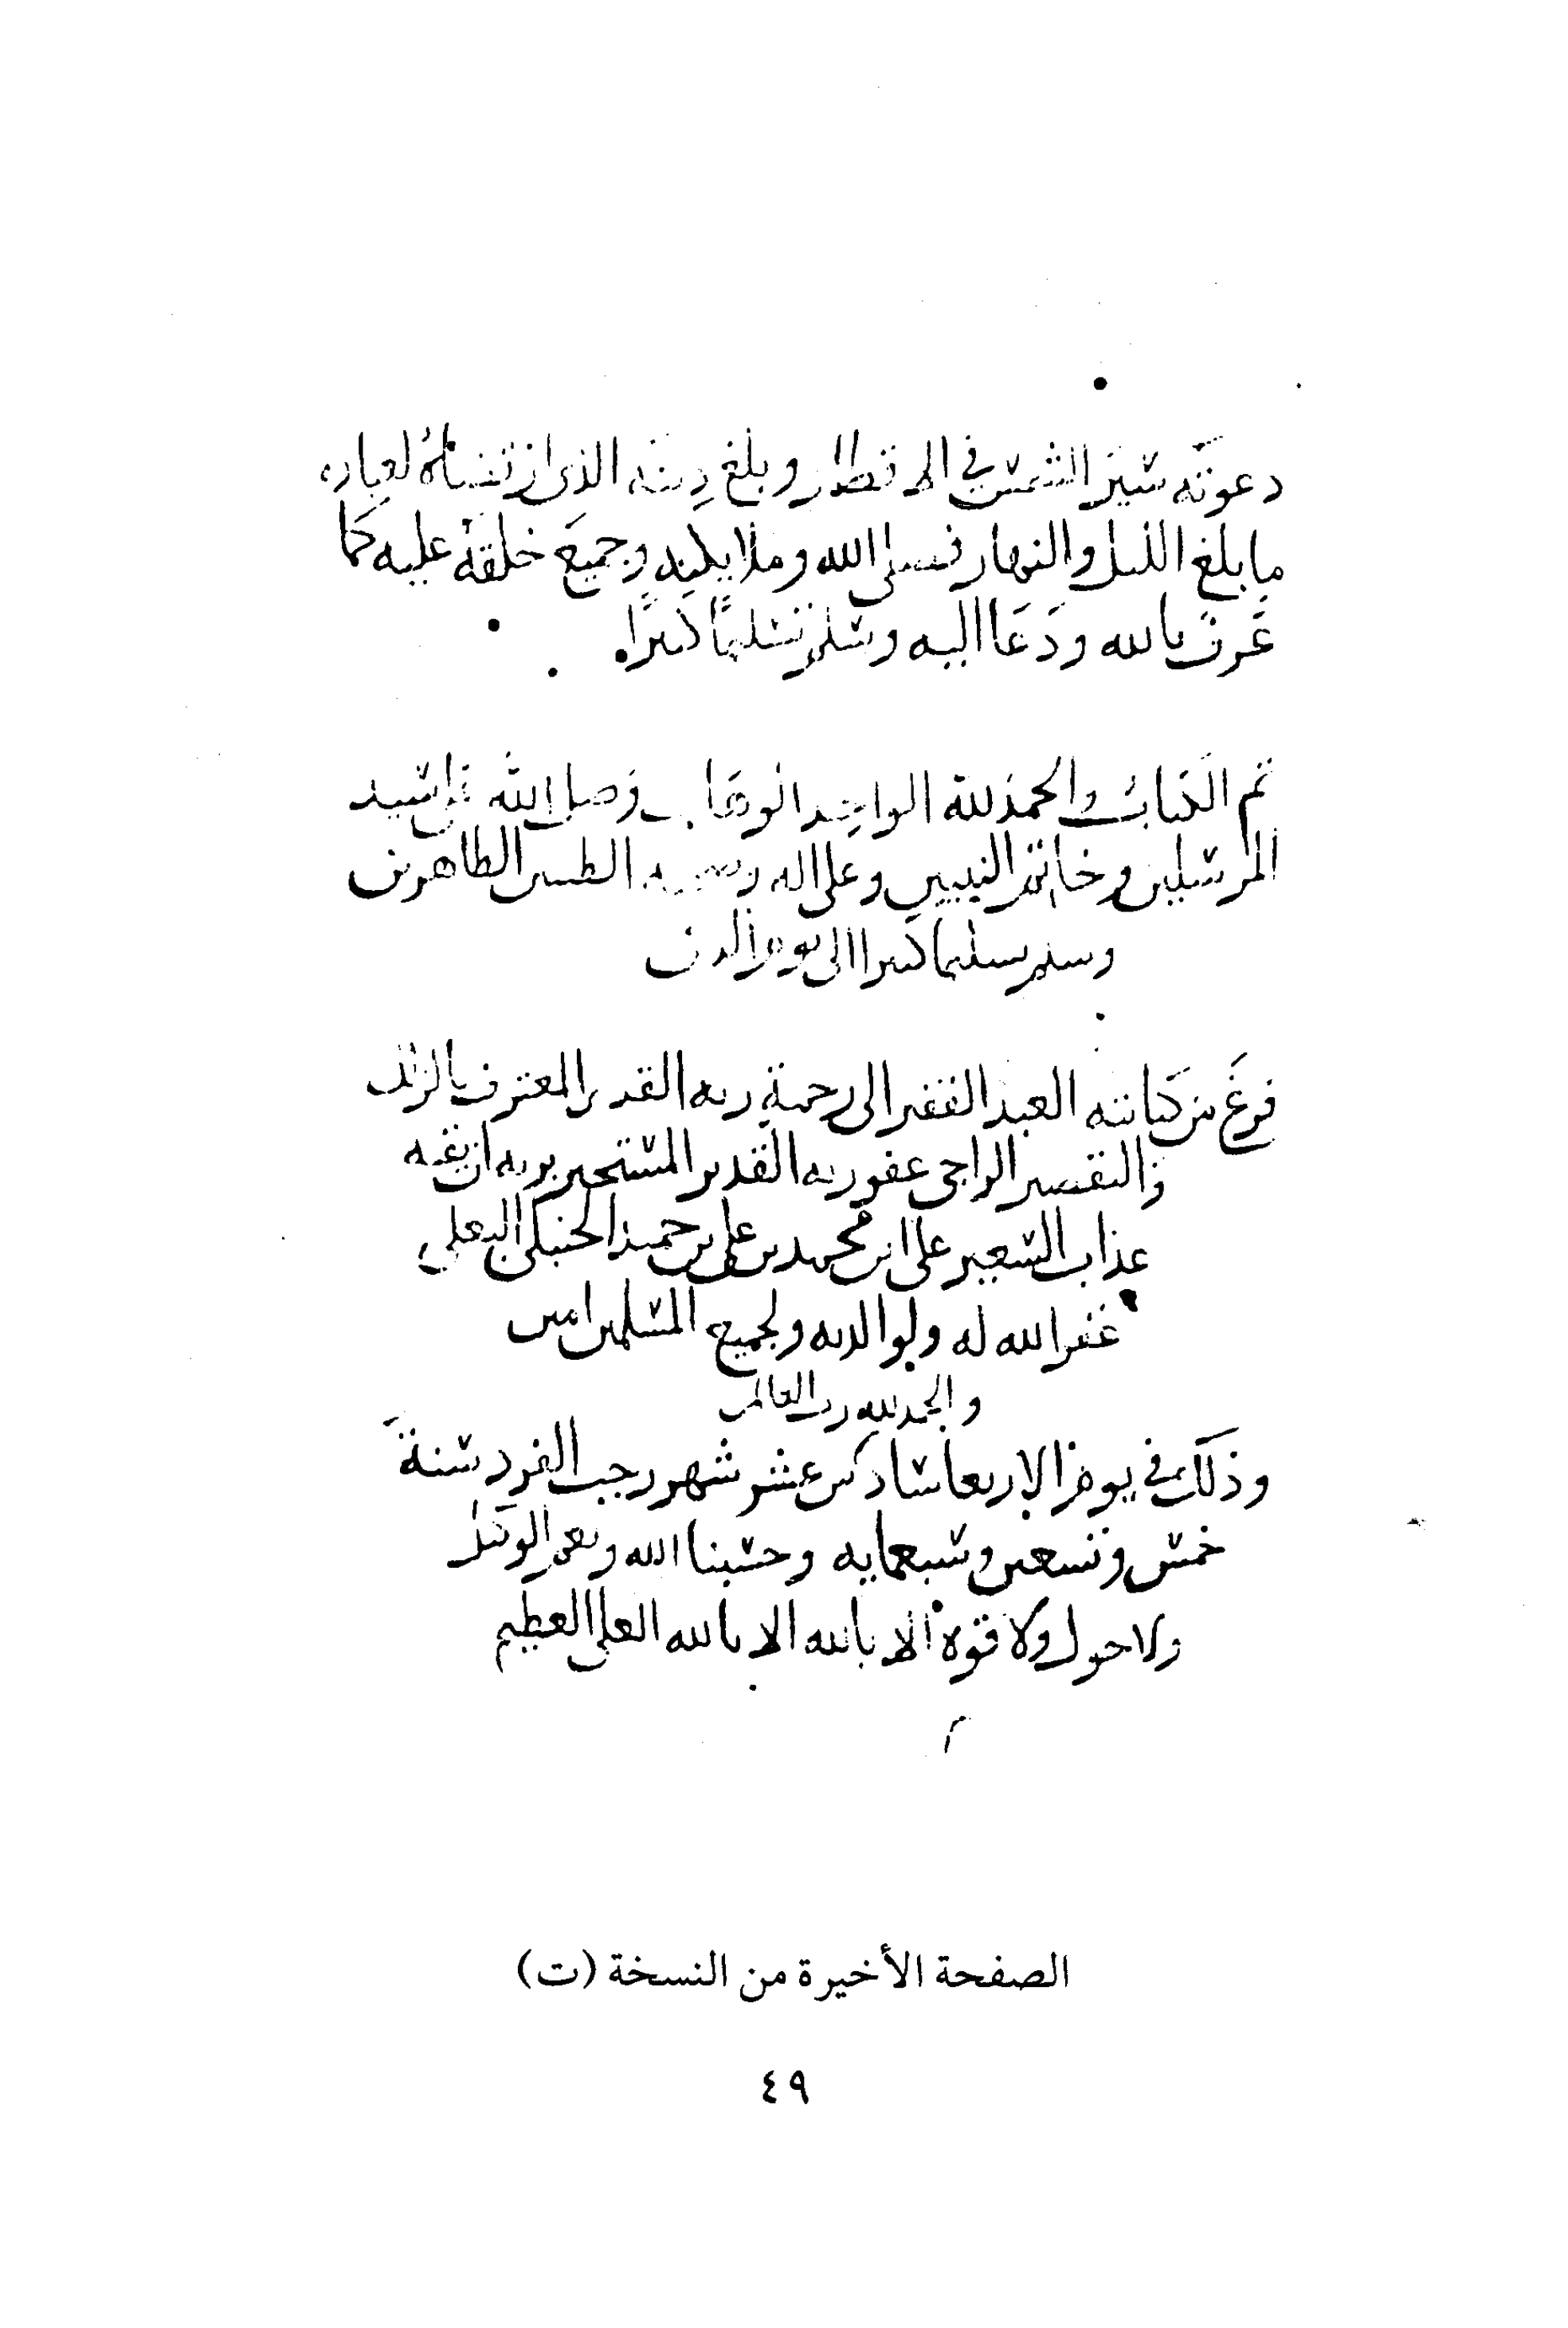 دعوته سير الشمس في الاقطار وبلغ دينه الذي ارتضاه لعباده
ما بلغ الليل والنهار فصلى الله وملايكته وجميع خلقه عليه كما
عرف بالله ودعا اليه وسلم تسليما كثيرا.
تم الكتاب والحمد لله الواحد الوهاب وصلى الله على سيد
المرسلين وخاتم النبيين وعلى اله وصحبه الطيبين الطاهرين
وسلم تسليما كثيرا الى يوم الدين
فرغ من كتابته العبد الفقير الى رحمة ربه القدير المعترف بالزلل
والتقصير الراجي عفو ربه القدير المستجير بربه ان يقيه
عذاب السعير علي ابن محمد بن علي بن حميد الحنبلي البعلي
غفر الله له ولوالديه ولجميع المسلمين امين
والحمد لله رب العالمين
وذلك في يوم الاربعا سادس عشر شهر رجب الفرد سنة
خمس وتسعين وسبعمايه وحسبنا الله ونعم الوكيل
ولا حول ولا قوة الا بالله الا بالله العلي العظيم
م
الصفحة الأخيرة من النسخة (ت)
٤٩